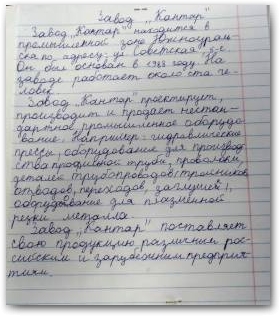 Завод „Кантар"
Завод „Кантар" находится в
промышленной зоне Южноураль
ска по адресу: ул. Советская
Он был основан в 1983 году. На
заводе работает около ста че-
ловек.
Завод „Кантар" проектирует,
производит и продает нестан-
дартное промышленное оборудо-
вание. Например: гидравлические
прессы, оборудование для производ
ства профильной трубы, проволоки,
деталей трубопроводов (тройников
отводов, переходов, заглушей),
оборудование для плазменной
резки металла.
Завод „Кантар" поставляет
свою продукцию различным рос-
сийским и зарубежным предприя-
тиям.